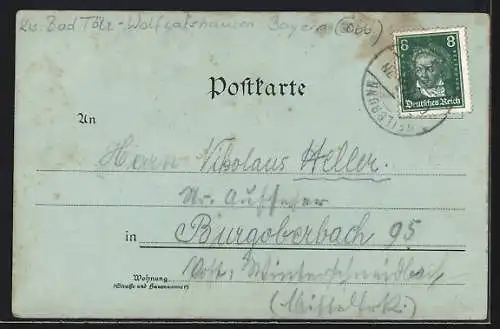 Krs. Bad Tölz-Wolfratshausen Bayern (Obb)
8 8
Deutsches Reich
HEILBRUNN
Postkarte
An
Herrn Nikolaus Heller.
Aufseher
in Burgoberbach 95
Wohnung
(Straße und Hausnummer)
Post, Winterschneidbach
(Mittelfrk.)